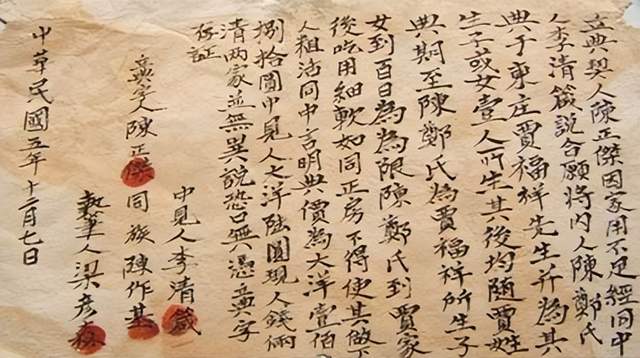 立典契人陳正傑因家用不足經同中
人李清箴説合願將內人陳鄭氏
典于東庄賈福祥先生并為其
生子或女壹人所生其後均隨賈姓
典期至陳鄭氏為賈福祥所生子
女到百日為為限陳鄭氏到賈家
後吃用細軟如同正房不得使其做下
人粗活同中言明典價為大洋壹佰
捌拾圓中見人大洋陆圓現人錢兩
清兩家並無異說恐口無憑立典字
存証
中見人李清箴
立典字人陳正傑同族陳作基
執筆人梁彦森
中華民國五年十二月七日